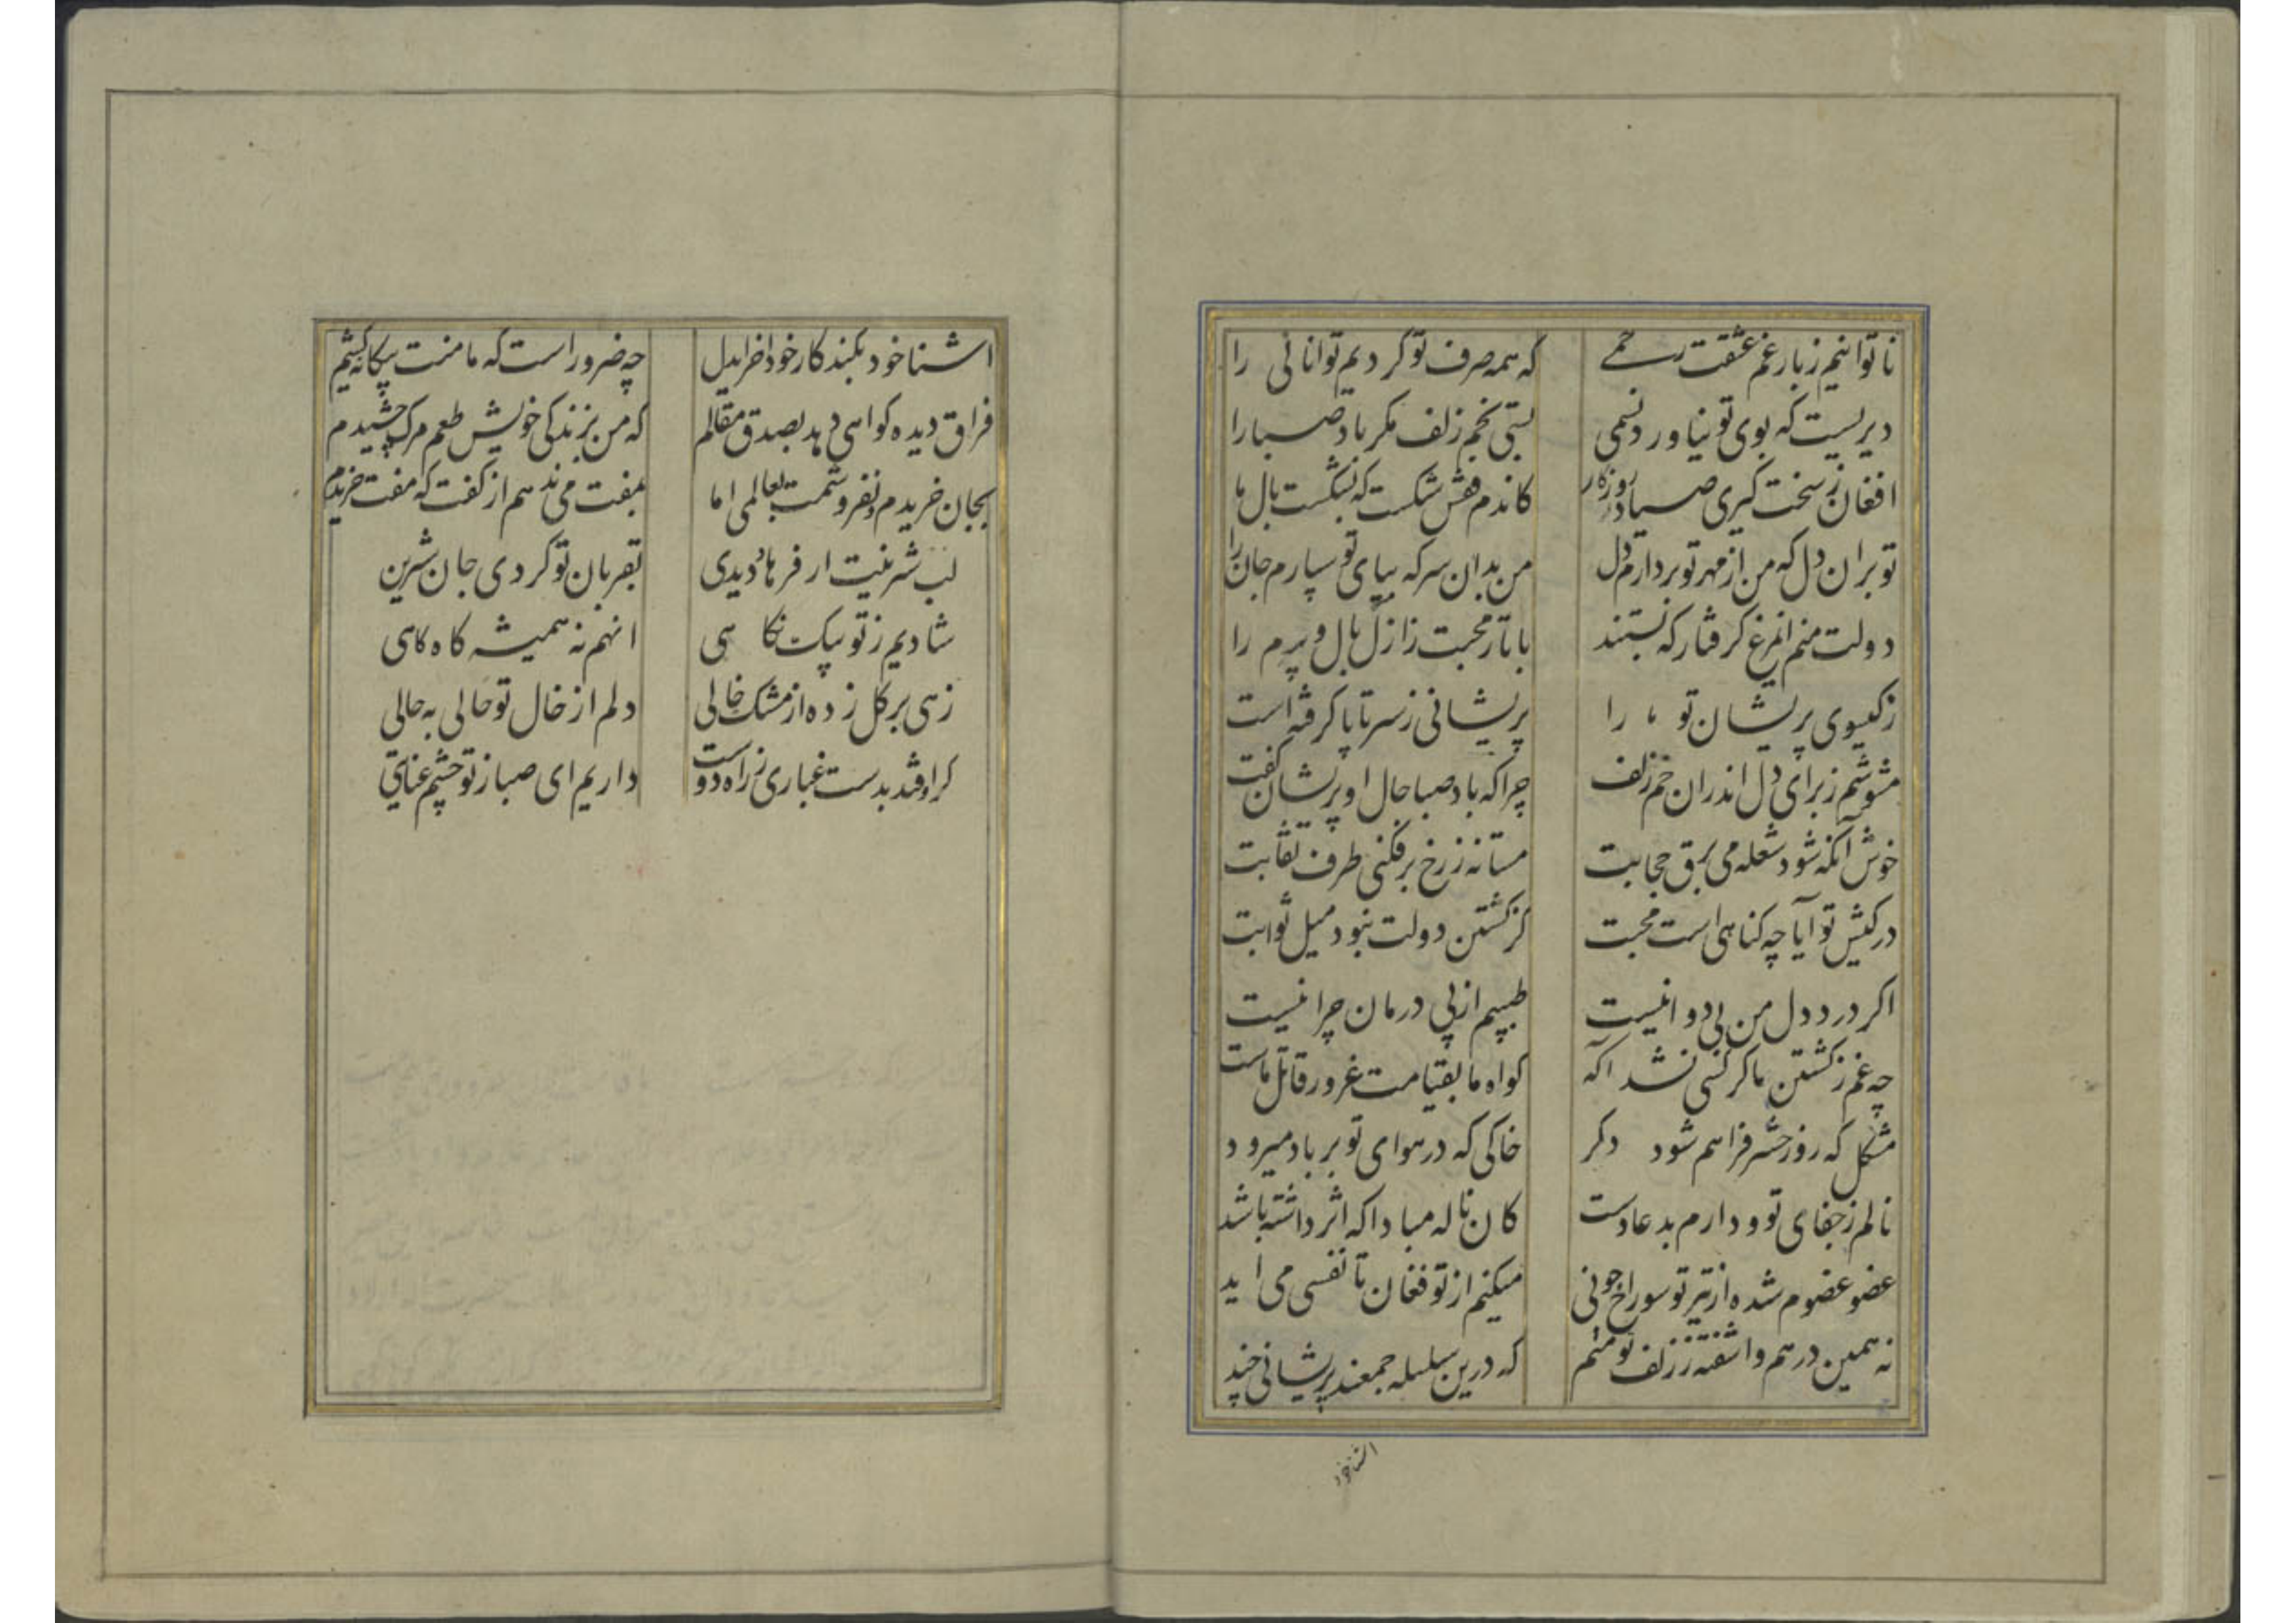 ناتوانیم ز بار غم عشقت رحمی
که همه صرف تو کردیم توانائی را
دیریست که بوی تو نیاورد نسمی
بستی بخم زلف مکر باد صبا را
افغان ز سخت کیری صیاد روزکار
کاندم قفس شکست که بشکست بال ما
تو بران دل که من از مهر تو بردارم دل
من بدان سر که بپای تو سپارم جان را
دولت منم انمرغ کرفتار که بستند
با تار محبت ز ازل بال و پرم را
ز کیسوی پریشان تو ما را
پریشانی ز سر تا پا کرفته است
مشوشم ز برای دل اندران خم زلف
چرا که باد صبا حال او پریشان کفت
خوش آنکه شود شعله می برق حجابت
مستانه ز رخ برفکنی طرف نقابت
در کیش تو آیا چه کناهی است محبت
کز کشتن دولت نبود میل ثوابت
اکر درد دل من بی دوا نیست
طبیبم از پی درمان چرا نیست
چه غم ز کشتن ما کر کسی نشد اکه
کواه ما بقیامت غرور قاتل ماست
مشکل که روز حشر فراهم شود دکر
خاکی که در هوای تو بر باد میرود
نالم ز جفای تو و دارم بدعا دست
کان ناله مبادا که اثر داشته باشد
عضو عضوم شده از تیر تو سوراخ چونی
میکنم از تو فغان تا نفسی می اید
نه همین درهم و اشفته ز زلف تو منم
که درین سلسله جمعند پریشانی چند
اشنا خود
اشنا خود بکند کار خود اخر ایدل
چه ضرور است که ما منت بیکانه کشیم
فراق دیده کواهی دهد بصدق مقالم
که من بزندکی خویش طعم مرک چشیدم
بجان خریدم و نفروشمت بعالمی اما
بمفت می ندهم از کفت که مفت خریدم
لب شرینیت ار فرهاد دیدی
بقربان تو کردی جان شرین
شادیم ز تو بیک نکاهی
انهم نه همیشه کاه کاهی
زهی بر کل زده از مشک خالی
دلم از خال تو حالی به حالی
کر اوفتد بدست غباری ز راه دوست
داریم ای صبا ز تو چشم عنایتی